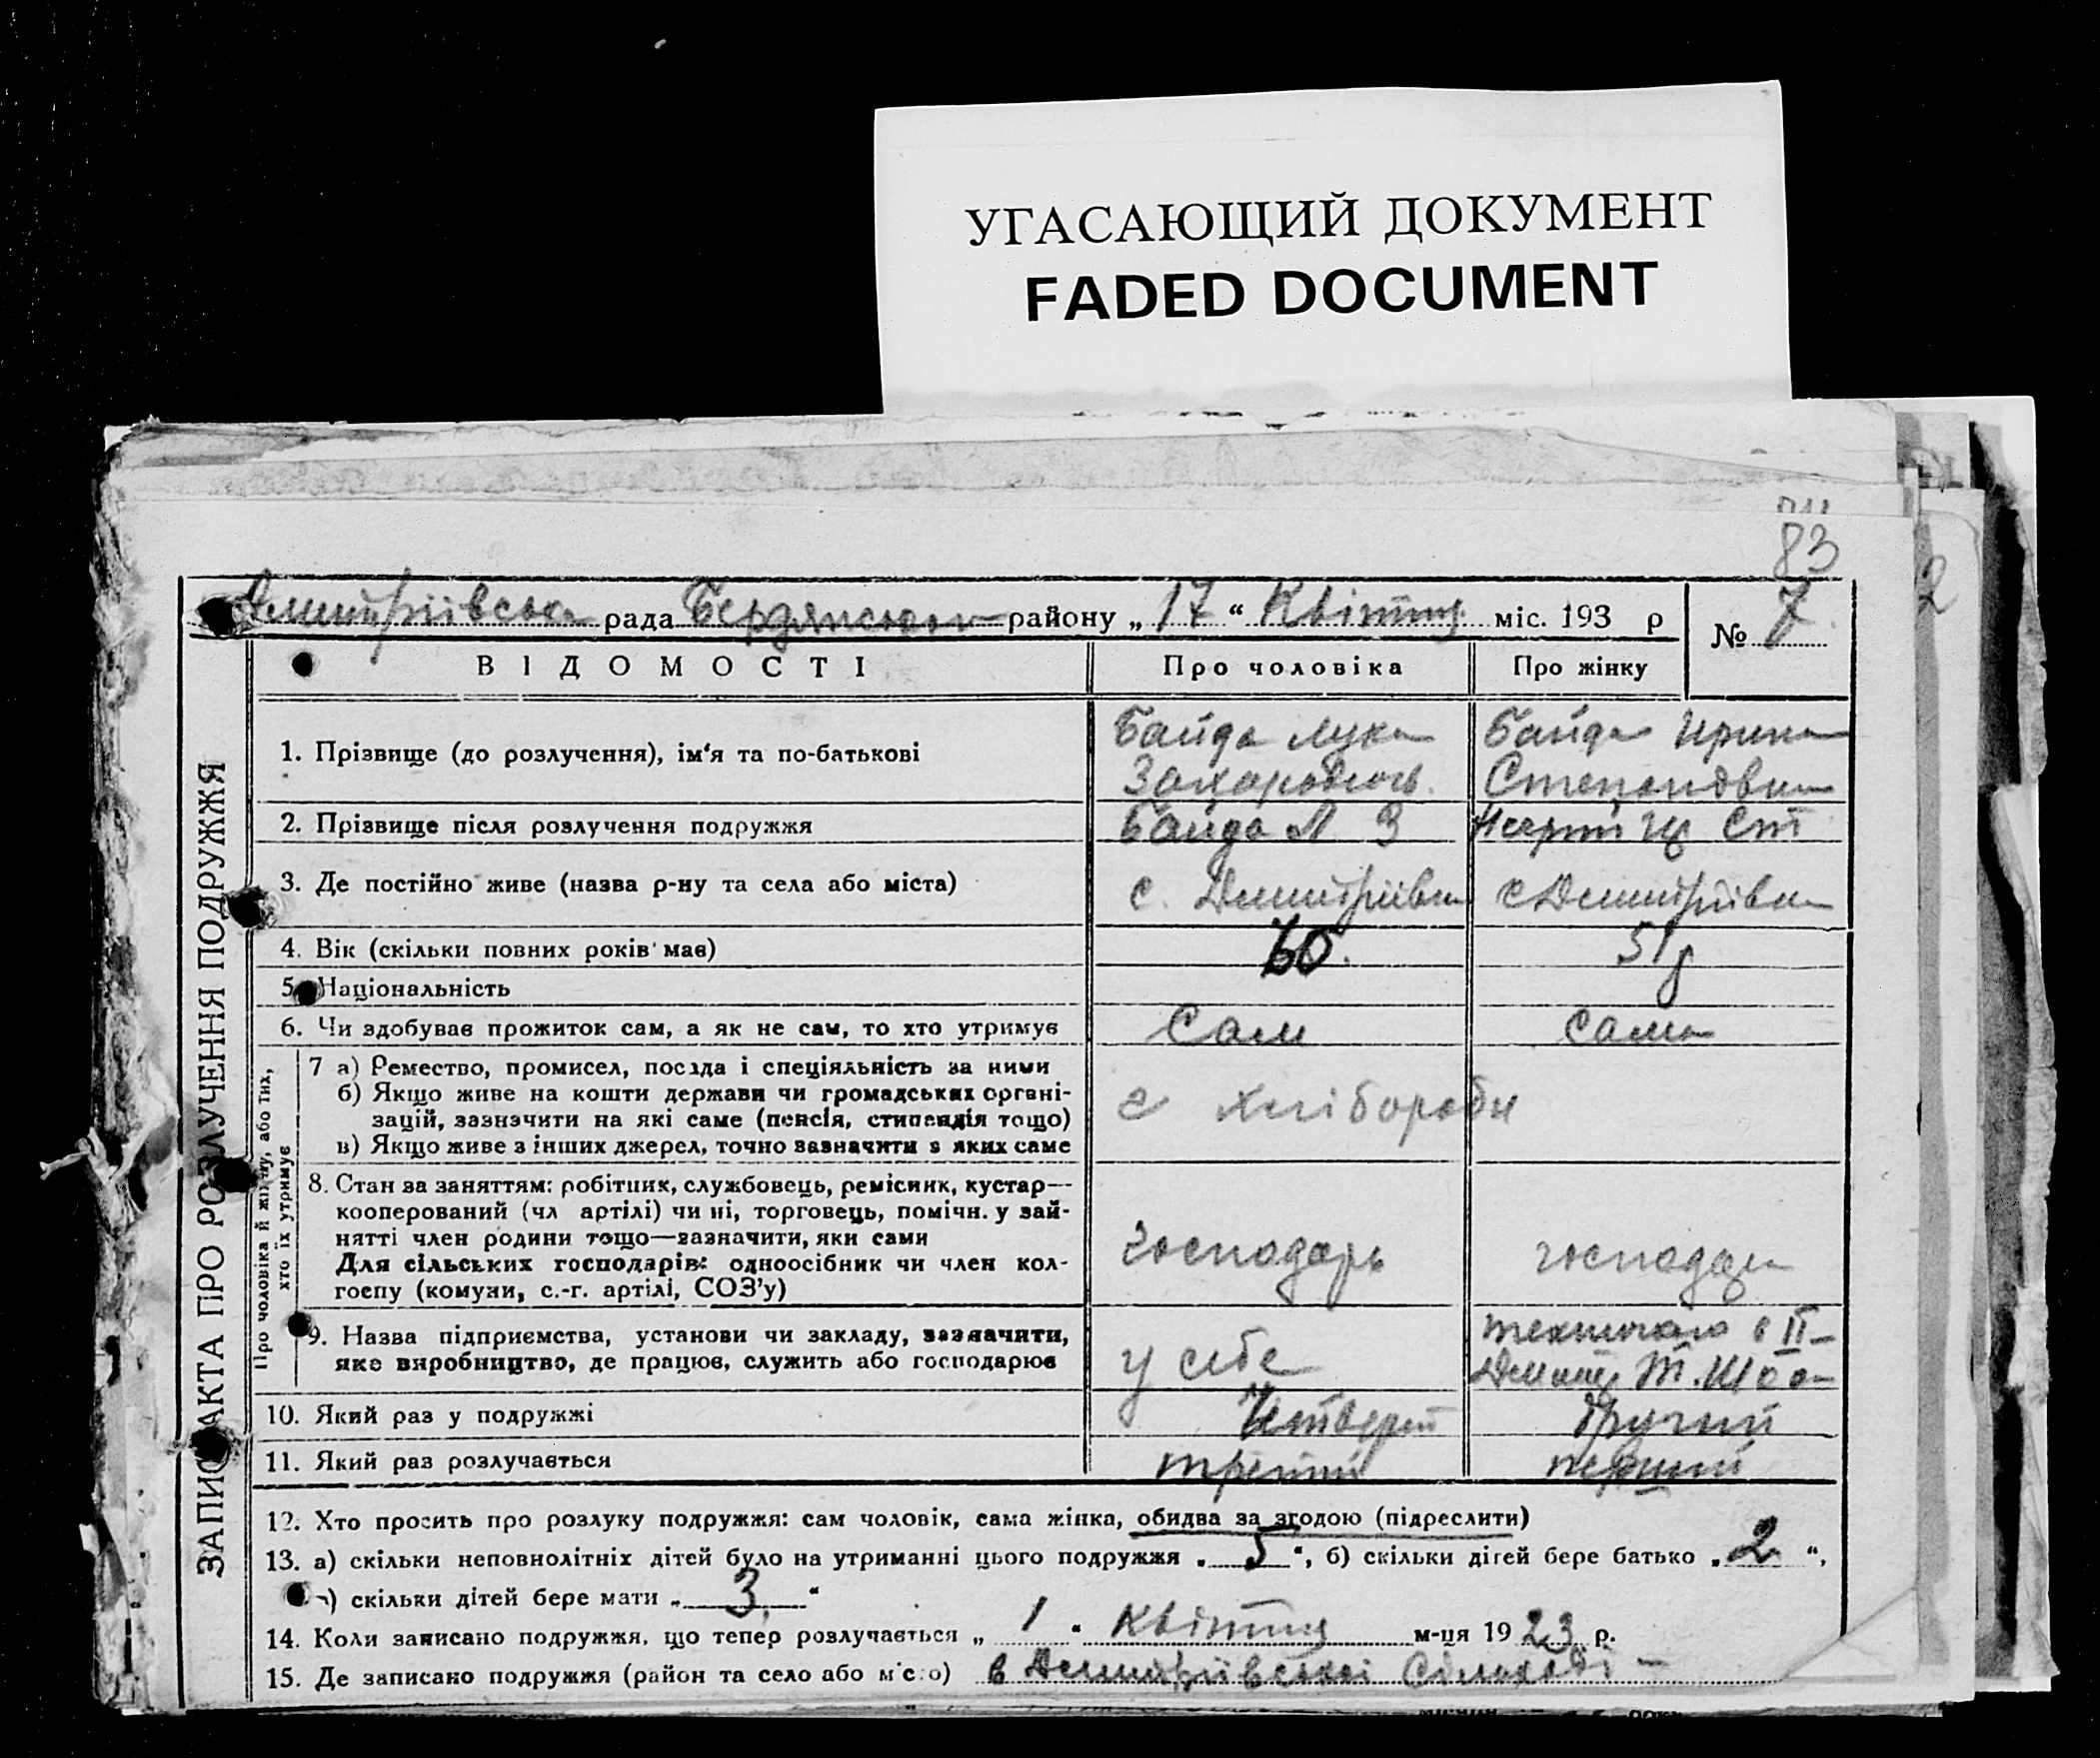 УГАСАЮЩИЙ ДОКУМЕНТ
FADED DOCUMENT
83
2
Дмитріївська рада Бердянського району „ 17 “ Квітня міс. 193 р
№ 7
ЗАПИС АКТА ПРО РОЗЛУЧЕННЯ ПОДРУЖЖЯ
ВІДОМОСТІ Про чоловіка Про жінку
1. Прізвище (до розлучення), ім‘я та по-батькові
Байда Лука
Захарович.
Байда Ирина
Степановна
2. Прізвище після розлучення подружжя Байда Л З Ст
3. Де постійно живе (назва р-ну та села або міста) с. Дмитріївка с Дмитріївка
4. Вік (скільки повних років має) 60. 51 р
5. Національність
6. Чи здобуває прожиток сам, а як не сам, то хто утримує Сам сама
Про чоловіка й жінку, або тих,
хто їх утримує
7 а) Ремество, промисел, посада і спеціяльність за ними
б) Якщо живе на кошти держави чи громадських органі-
зацій, зазначити на які саме (пенсія, стипендія тощо)
в) Якщо живе з інших джерел, точно зазначити з яких саме
є хлібороби
8. Стан за заняттям: робітник, службовець, ремісник, кустар—
кооперований (чл артілі) чи ні, торговець, помічн. у зай-
нятті член родини тощо—зазначити, яки сами
Для сільських господарів: одноосібник чи член кол-
госпу (комуни, с.-г. артілі, СОЗ’у)
господарь
9. Назва підприємства, установи чи закладу, зазначити,
яке виробництво, де працює, служить або господарює
у себе
в II
10. Який раз у подружжі Четверт другий
11. Який раз розлучається третий перший
12. Хто просить про розлуку подружжя: сам чоловік, сама жінка, обидва за згодою (підреслити)
13. а) скільки неповнолітніх дітей було на утриманні цього подружжя „ 5 “, б) скільки дітей бере батько „ 2 “,
в) скільки дітей бере мати „ 3. “
14. Коли записано подружжя, що тепер розлучається „ 1 “ Квітня м-ця 1923 р.
15. Де записано подружжя (район та село або місто) в Дмитріївській Сільраді